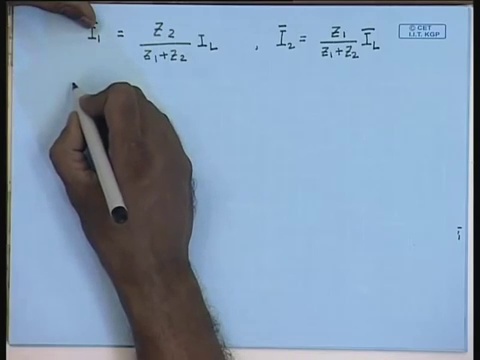 Ī₁ = Z₂ / (Z₁+Z₂) I_L , Ī₂ = Z₁ / (Z₁+Z₂) Ī_L
© CET
I.I.T. KGP